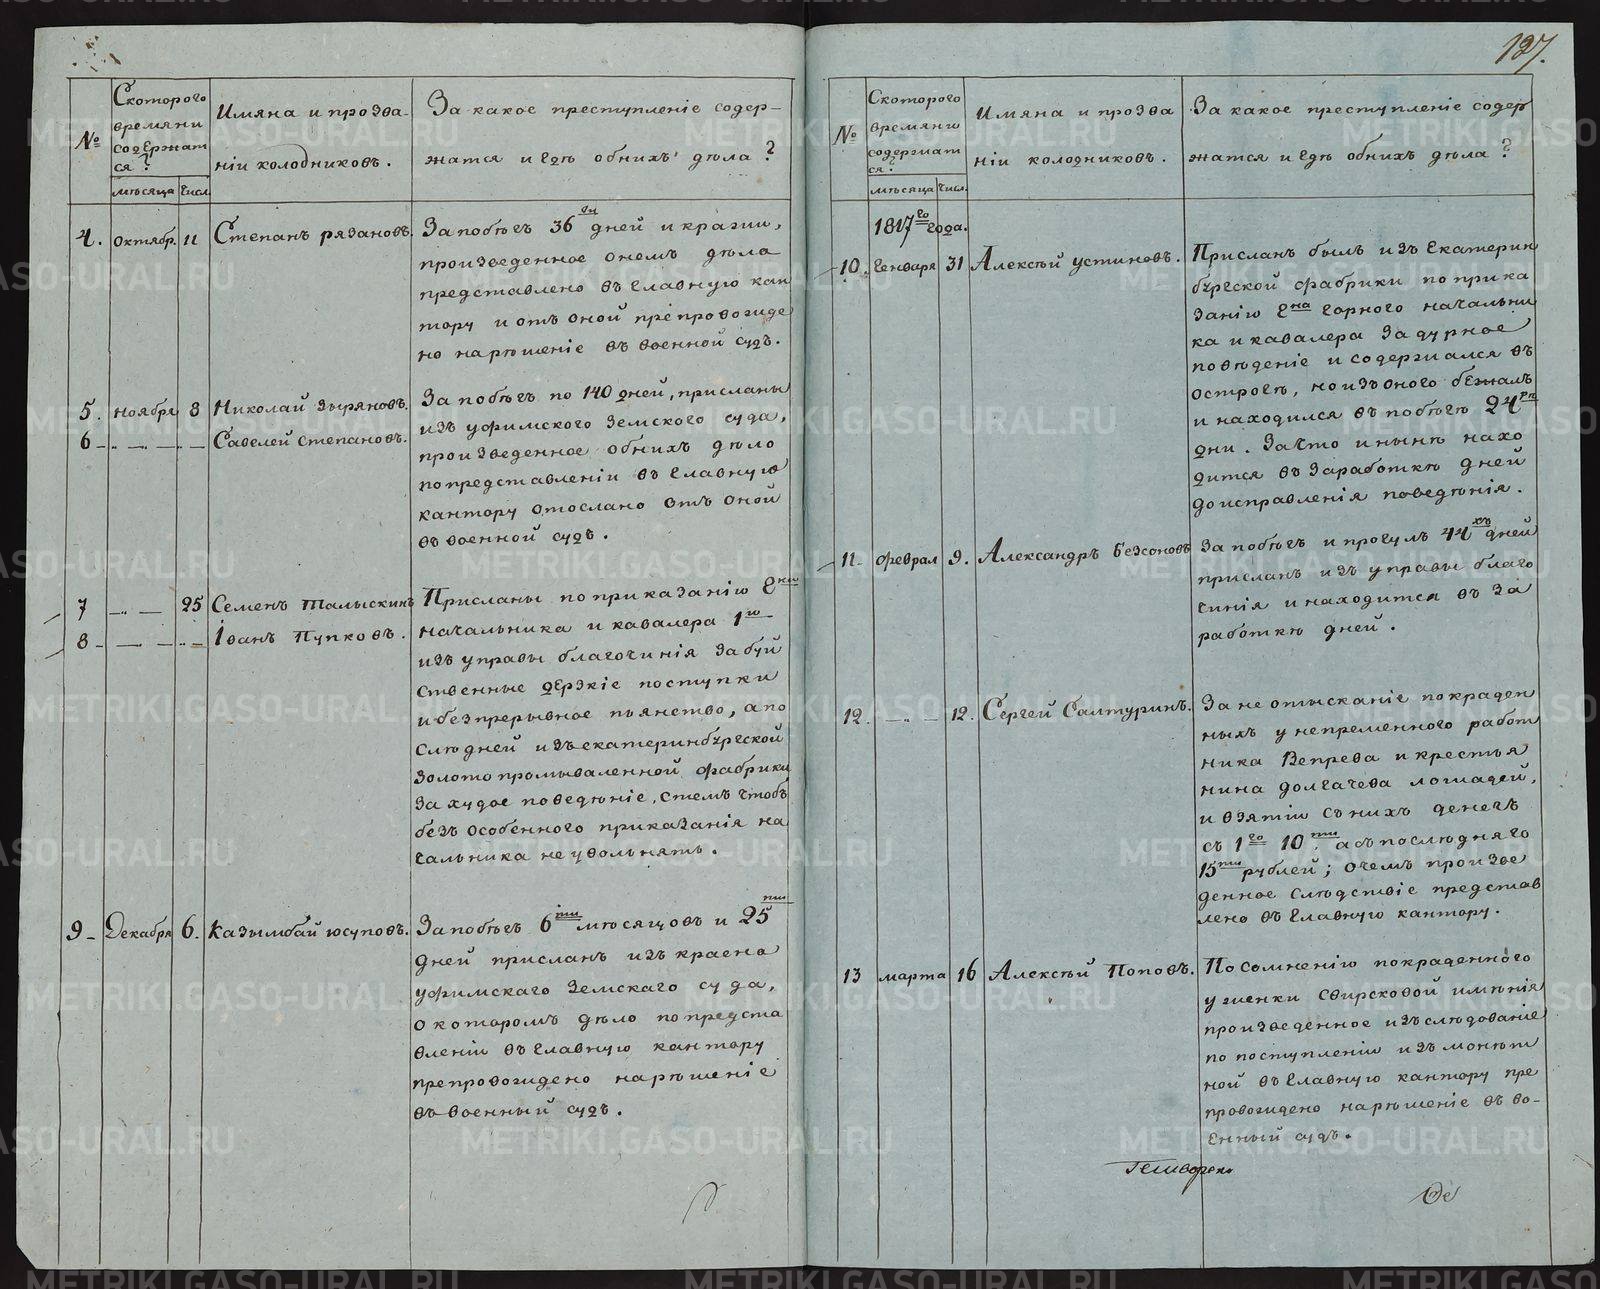 127.
№
Скоторого
времяни
содержат
ся?
мѣсяца
числ.
Имяна и прозва-
ніи колодниковъ.
За какое преступленіе содер-
жатся и гдѣ обнихъ дѣла?
4. октябр. 11 Степанъ рязановъ.
За побѣгъ 36ти дней и кражи,
произведенное онемъ дѣла
представлено въ главную кан
тору и отъ оной препровожде
но нарѣшеніе въ военной судъ.
5. ноября 8 Николай зыряновъ.
6 Савелей степановъ.
За побѣгъ по 140 дней, присланы
изъ уфимского земского суда,
произведенное обнихъ дѣло
попредставленіи въ главную
кантору отослано отъ оной
въ военной судъ.
7 25 Семенъ талыскинъ
8 Іванъ Пупковъ.
Присланы по приказанію
началъника и кавалера 1го
изъ управы благочинія за буй
ственные дерзкіе поступки
и безпрерывное пьянство, а по
слѣдней изъ екатеринбургской
золотопромываленной фабрики
за худое поведѣніе, стемъ чтобъ
безъ особенного приказанія на
чальника не уволънять.
9 Декабря 6. казымбай юсуповъ.
За побѣгъ 6ти мѣсяцовъ и 25ти
дней присланъ изъ краена
уфимскаго земскаго суда,
о которомъ дѣло попредста
вленіи въ главную кантору
препровождено нарѣшеніе
въ военный судъ.
№
Скоторого
времяни
содержат
ся?
мѣсяца
числ.
Имяна и прозва
ніи колодниковъ.
За какое преступленіе содер
жатся и гдѣ обнихъ дѣла?
1817го года.
10. генваря 31 Алексѣй устиновъ.
Присланъ былъ изъ Екатерин
бургской фабрики по прика
занію Гна горного началъни
ка и кавалера за дурное
повѣденіе и содержался въ
острогѣ, но изъ оного бежалъ
и находился въ побѣгѣ 24ре
дни. За что и нынѣ нахо
дится въ заработкѣ дней
до исправленія поведѣнія.
11. феврал 9. Александръ безсоновъ
За побѣгъ и прогулъ 44хъ дней
присланъ изъ управы благо
чинія и находится въ за
работкѣ дней.
12. 12. Сергей Салтуринъ.
За не отысканіе покраден
ныхъ у непременного работ
ника Вепрева и крестья
нина долгачева лошадей,
и взятіи снихъ денегъ
съ 1го 10ти а съ послѣдняго
15ти рублей; очемъ произве
денное слѣдствіе представ
лено въ главную кантору.
13 марта 16 Алексѣй Поповъ.
По сомненію покраденного
у женки Свирсковой имѣнія
произведенное изъслѣдованіе
по поступленіи изъ монѣт
ной въ главную кантору пре
провождено нарѣшеніе въ во-
енный судъ.